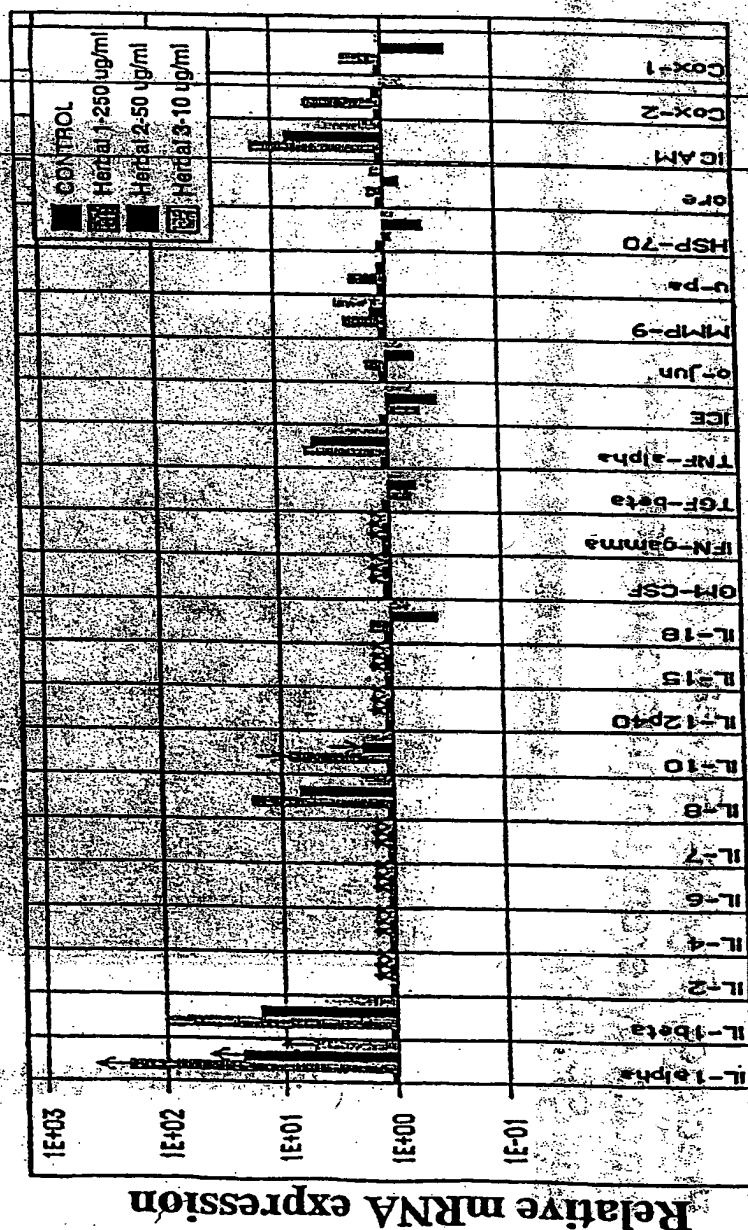 Relative mRNA expression
1E+03
1E+02
1E+01
1E+00
1E-01
CONTROL
Herbal 1-250 ug/ml
Herbal 2-50 ug/ml
Herbal 3-10 ug/ml
IL-1alpha
IL-1beta
IL-2
IL-4
IL-6
IL-7
IL-8
IL-10
IL-12p40
IL-15
IL-18
GM-CSF
IFN-gamma
TGF-beta
TNF-alpha
ICE
c-jun
MMP-9
u-pa
HSP-70
ICAM
Cox-2
Cox-1